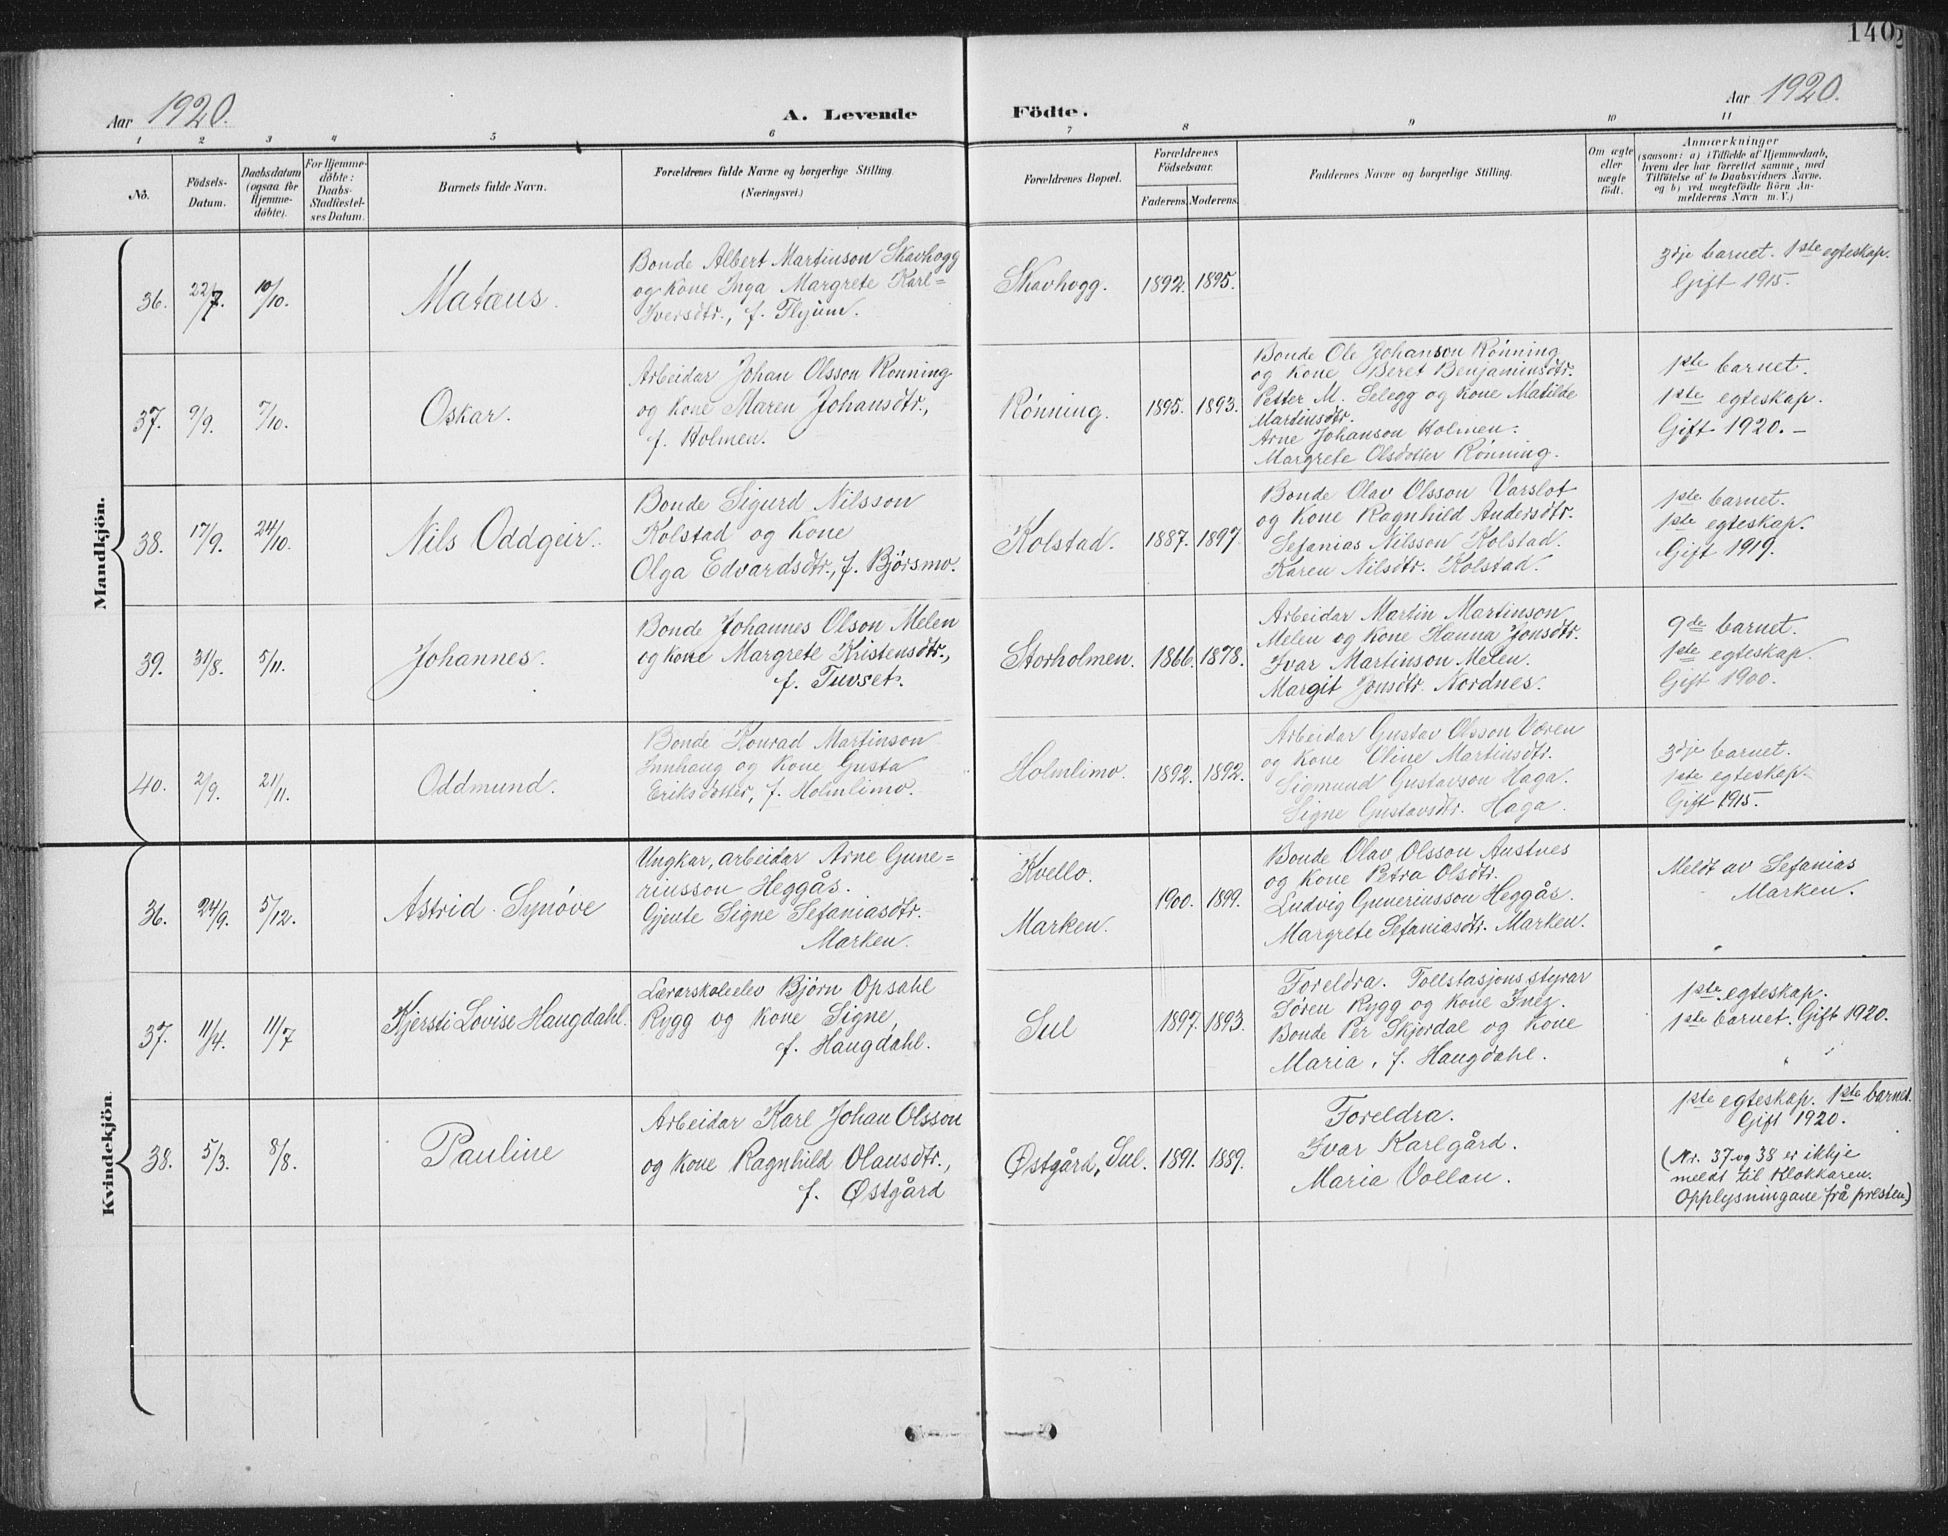 140
Aar 1920.
A. Levende Födte.
Aar 1920.
1 2 3 4 5 6 7 8 9 10 11
No.
Födsels-Datum.
Daabsdatum (ogsaa for Hjemme-döbte).
For Hjemme-döbte: Daabs-Stadfæstel-ses Datum.
Barnets fulde Navn.
Forældrenes fulde Navne og borgerlige Stilling.
(Næringsvei.)
Forældrenes Bopæl.
Forældrenes Födselsaar.
Faderens. Moderens.
Faddernes Navne og borgerlige Stilling.
Om ægte eller uægte födt.
Anmærkninger
(saasom: a) i Tilfælde af Hjemmedaab,
hvem der har forrettet samme, med
Tilföielse af to Daabsvidners Navne,
og b) ved uægtefödte Börn An-
melderens Navn m. V.)
Mandkjön.
36. 22/7. 10/10. Mataus
Bonde Albert Martinson Skavhogg
og kone Inga Margrete Karl=
Iversdtr., f. Flyum.
Skavhogg. 1892. 1895.
3dje barnet. 1ste egteskap.
Gift 1915.
37. 9/9. 7/10. Oskar.
Arbeidar Johan Olsson Rønning
og kone Maren Johansdtr.,
f. Holmen.
Rønning. 1895. 1893.
Bonde Ole Johanson Rønning
og kone Beret Benjaminsdtr.
Petter M. Selegg og kone Matilde
Martinsdtr.
Arne Johanson Holmen.
Margrete Olsdotter Rønning.
1ste barnet.
1ste egteskap.
Gift 1920. –
38. 17/9. 24/10. Nils Oddgeir.
Bonde Sigurd Nilsson
Kolstad og kone
Olga Edvardsdtr., f. Bjørsmo.
Kolstad. 1887. 1897
Bonde Olav Olsson Varslot
og kone Ragnhild Andersdtr.
Sefanias Nilsson Kolstad.
Karen Nilsdtr. Kolstad.
1ste barnet.
1ste egteskap.
Gift 1919.
39. 31/8. 5/11. Johannes.
Bonde Johannes Olson Melen
og kone Margrete Kristensdtr.,
f. Tuvset.
Storholmen. 1866. 1878.
Arbeidar Martin Martinson
Melen og kone Hanna Jonsdtr.
Ivar Martinson Melen.
Margit Jonsdtr. Nordnes.
9de barnet.
1ste egteskap.
Gift 1900.
40. 2/9. 21/11. Oddmund.
Bonde Konrad Martinson
Innhaug og kone Gusta
Eriksdotter, f. Holmlimo.
Holmlimo. 1892. 1892.
Arbeidar Gustav Olsson Voren
og kone Oline Martinsdtr.
Sigmund Gustavson Haga.
Signe Gustavsdtr. Haga.
3dje barnet.
1ste egteskap.
Gift 1915.
Kvindekjön.
36. 24/9. 5/12. Astrid Synøve
Ungkar, arbeidar Arne Gune=
riusson Heggås.
Gjente Signe Sefaniasdtr.
Marken.
Kvello.
Marken.
1900. 1899.
Bonde Olav Olsson Austnes
og kone Petra Olsdtr.
Ludvig Guneriusson Heggås.
Margrete Sefaniasdtr. Marken.
Meldt av Sefanias
Marken.
37. 11/4. 11/7 Kjersti Lovise Haugdahl.
Lærarskoleelev Bjørn Opsahl
Rygg og kone Signe,
f. Haugdahl.
Sul 1897. 1893.
Foreldra. Tollstasjonsstyrar
Søren Rygg og kone Inez
Bonde Per Skjørdal og kone
Maria, f. Haugdahl.
1ste egteskap.
1ste barnet. Gift 1920.
38. 5/3. 8/8. Pauline
Arbeidar Karl Johan Olsson
og kone Ragnhild Olausdtr.,
f. Østgård
Østgård, Sul. 1891. 1889.
Foreldra.
Ivar Karlgård.
Maria Vollan.
1ste egteskap. 1ste barnet.
Gift 1920.
(Nr. 37 og 38 er ikkje
meldt til klokkaren.
Opplysningane frå presten.)